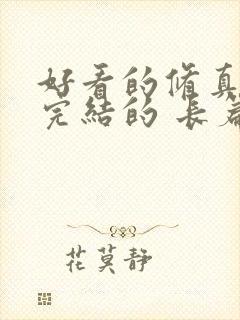 好看的修真
完結的 長篇
花莫静